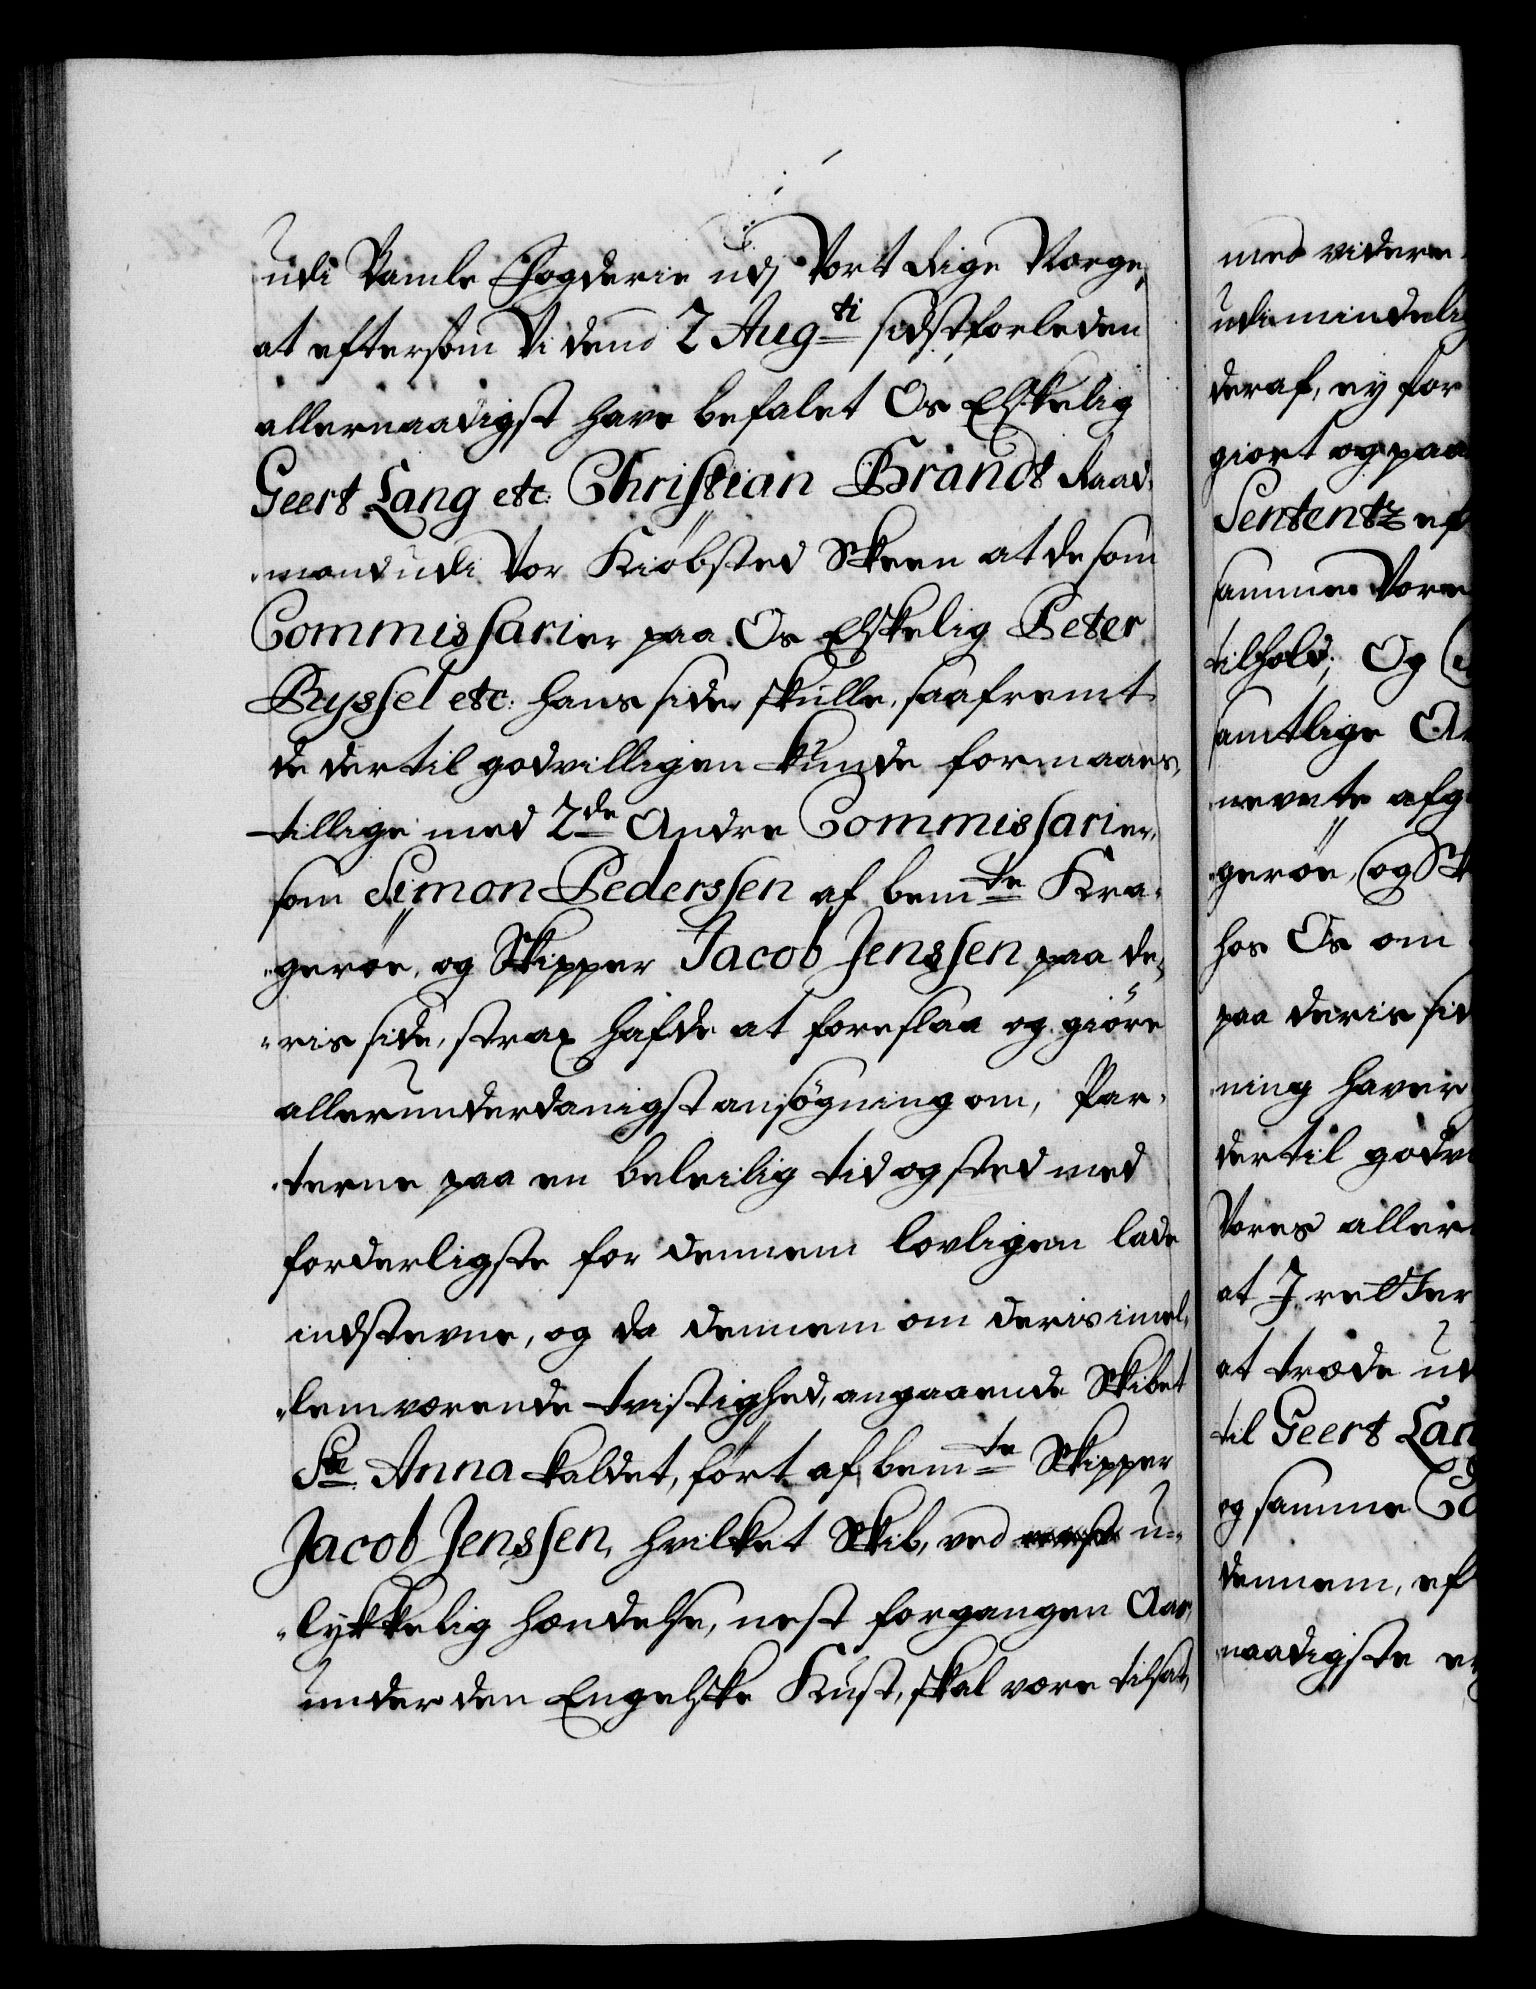 udi Bamle Fogderie udj Vort Rige Norge,
at eftersom Vi dend 2 Aug:ti sidstforleden
allernaadigst have befalet Os Elskelig
Geert Lang etc: Christian Brandt Raad-
mand udi Vor Kiøbsted Skeen at de som
Commissarier paa Os Elskelig Peter
Byssel etc: hans side, skulle, saafremt
de dertil godvilligen kunde formaaes,
tillige med 2de Andre Commissarier,
som Simon Pederssen af bemte Kra-
gerøe, og Skipper Jacob Jenssen paa de-
ris side, strax hafde at foreslaa og giøre
allerunderdanigst ansøgning om, Par-
terne paa en beleilig tid og sted med
forderligste for dennem lovligen lade
indstevne, og da dennem om deris imel-
lem værende tvistighed, angaaende Skibet
Ste Anna kaldet, ført af bemte Skipper
Jacob Jenssen, hvilket Skib, ved u-
lykkelig hændelse, nest forgangen Aar,
under den Engelske Kust, skal være tilsat,
med videre
udi mindelig
deraf, ey for
giort og paa
Sententz ef
samme Vore
tilhold; Og
samtlige
nevnte afg
gerøe, og
hos Os om
paa deris sid
ning haver
dertil godv
Vores aller
at I retter
at træde ud
til Geert Lan
og samme Co
dennem, ef
naadigste